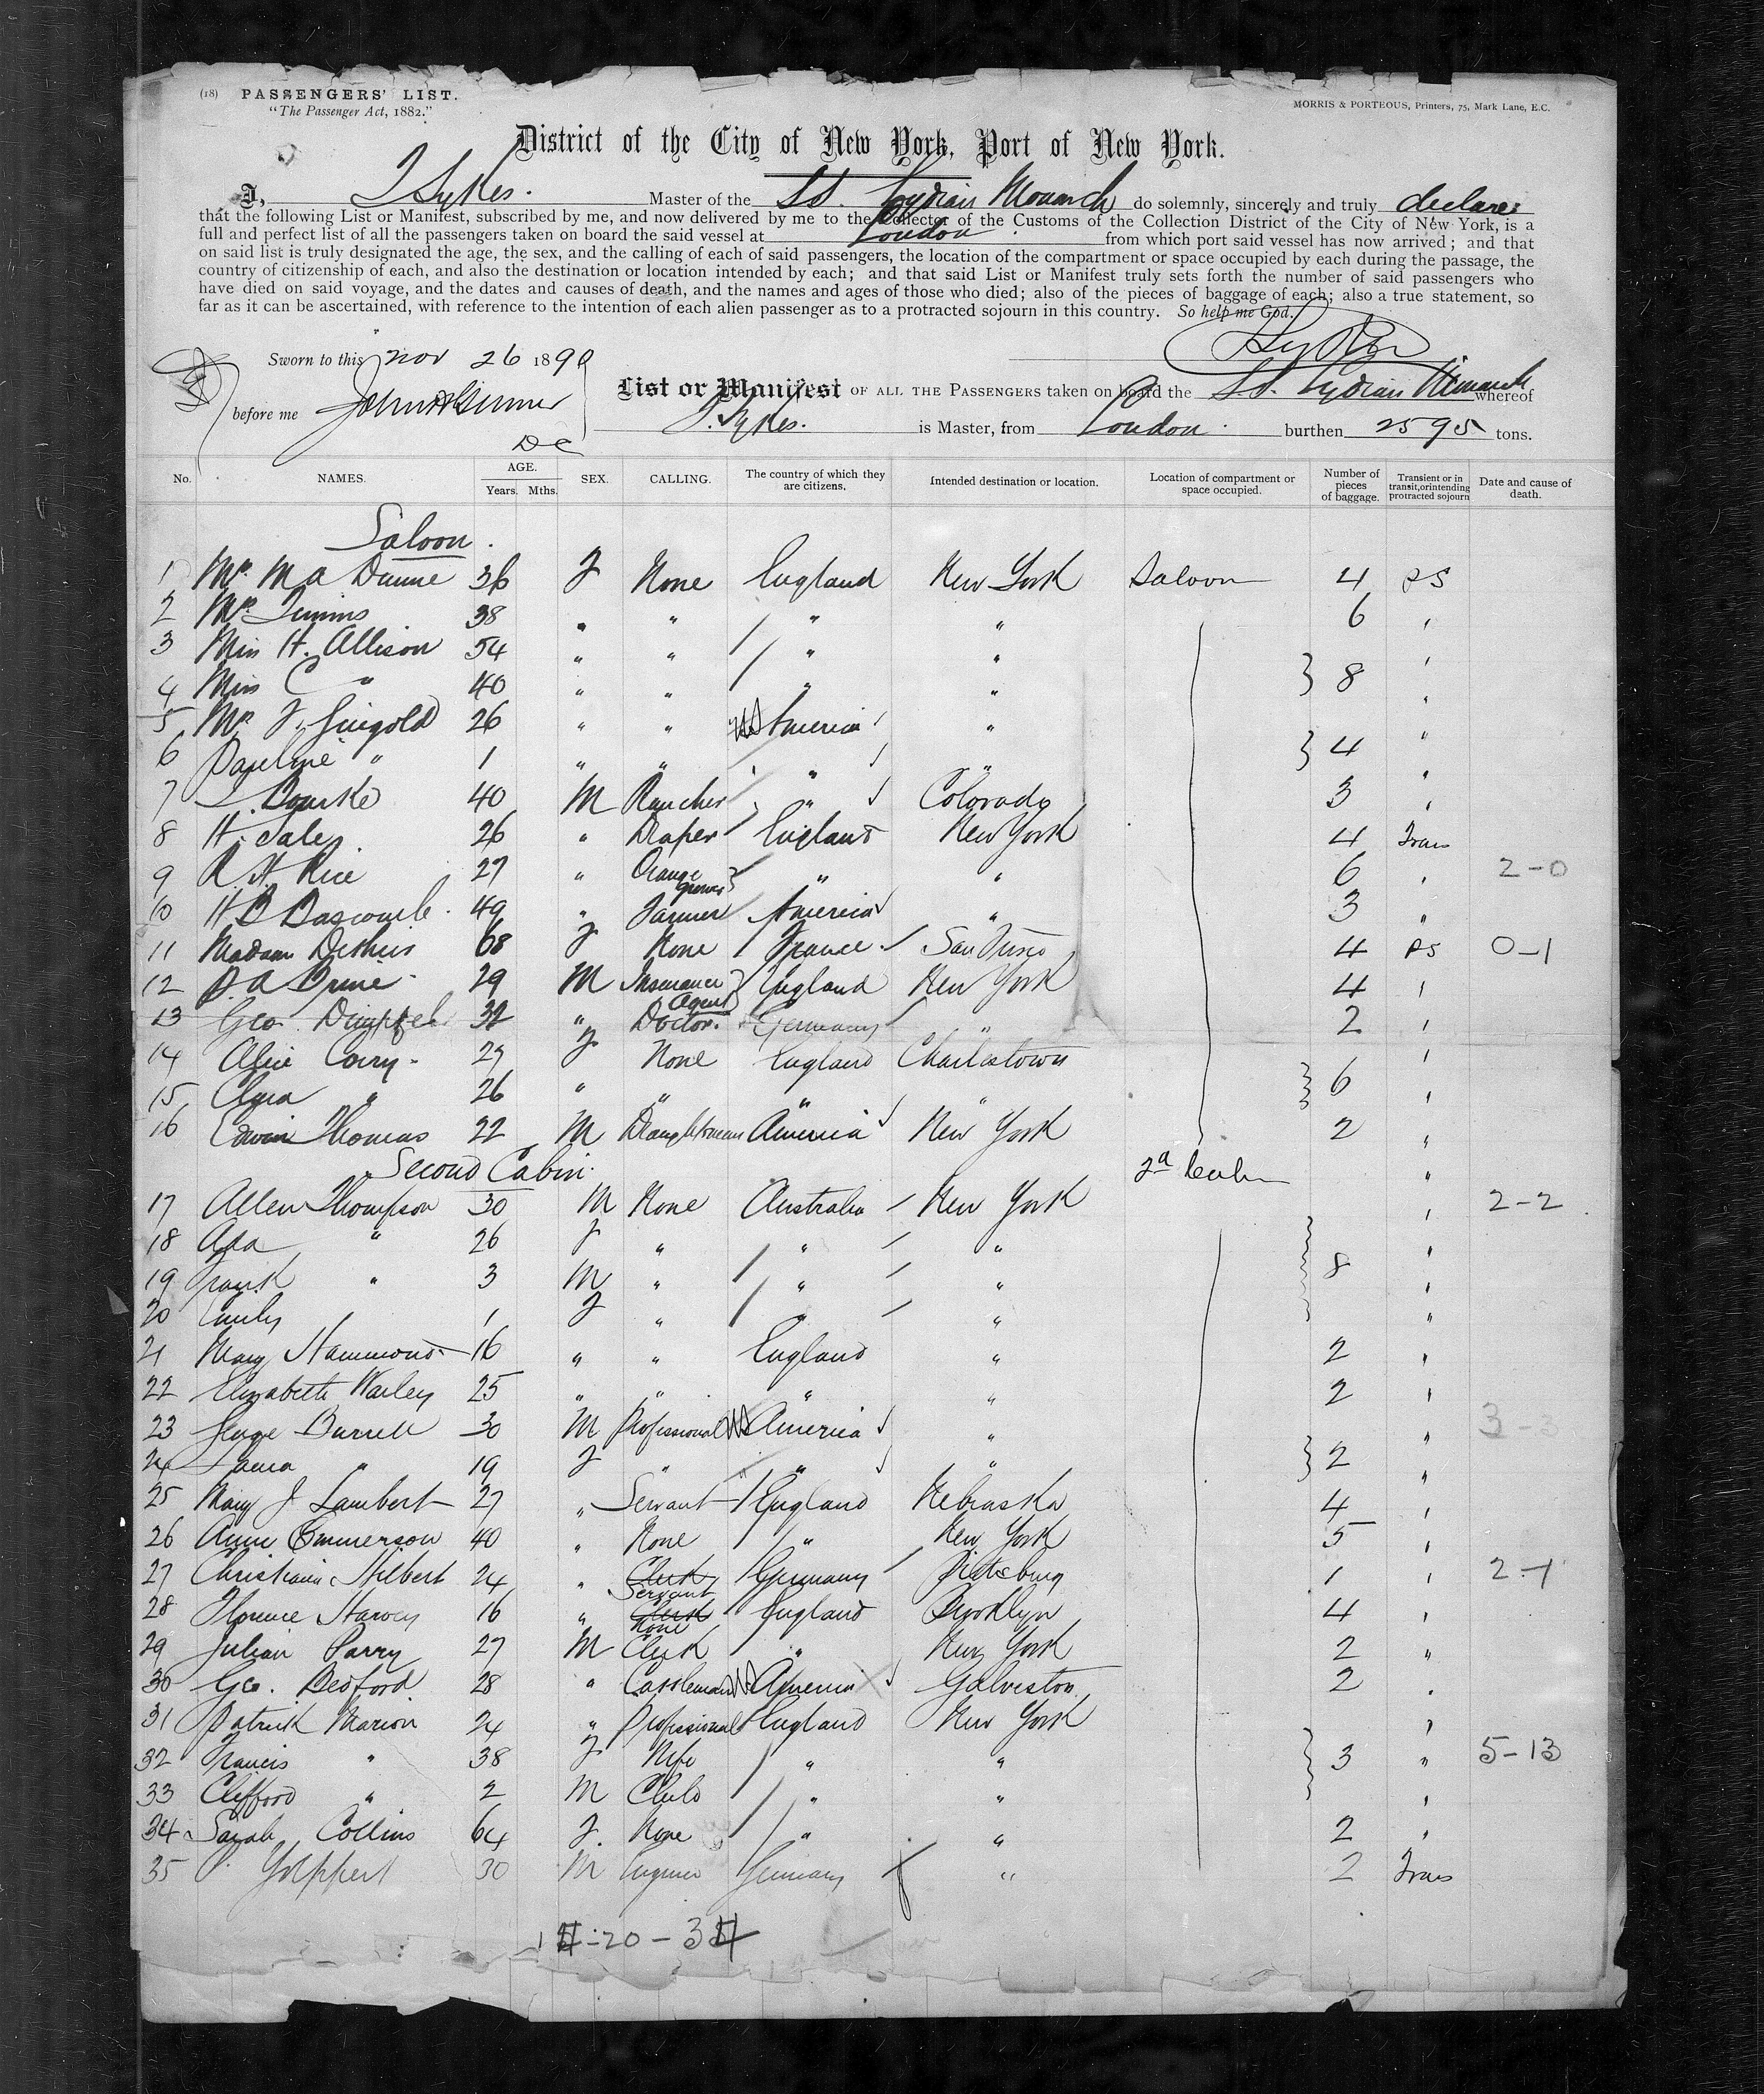 (18) PASSENGERS' LIST.
"The Passenger Act, 1882."
MORRIS & PORTEOUS, Printers, 75, Mark Lane, E.C.
District of the City of New York, Port of New York.
I, J Sykes. Master of the SS. Lydian Monarch do solemnly, sincerely and truly declare:
that the following List or Manifest, subscribed by me, and now delivered by me to the Collector of the Customs of the Collection District of the City of New York, is a
full and perfect list of all the passengers taken on board the said vessel at London from which port said vessel has now arrived; and that
on said list is truly designated the age, the sex, and the calling of each of said passengers, the location of the compartment or space occupied by each during the passage, the
country of citizenship of each, and also the destination or location intended by each; and that said List or Manifest truly sets forth the number of said passengers who
have died on said voyage, and the dates and causes of death, and the names and ages of those who died; also of the pieces of baggage of each; also a true statement, so
far as it can be ascertained, with reference to the intention of each alien passenger as to a protracted sojourn in this country. So help me God.
Sykes
Sworn to this Nov 26 1890
before me
DC
List or Manifest OF ALL THE PASSENGERS taken on board the SS. Lydian Monarch whereof
J. Sykes. is Master, from London. burthen 2595 tons.
No. NAMES. AGE. Years. Mths. SEX. CALLING. The country of which they are citizens. Intended destination or location. Location of compartment or space occupied. Number of pieces of baggage. Transient or in transit, or intending protracted sojourn Date and cause of death.
Saloon.
1 Mrs M A Dunne 36 F None England New York Saloon 4 PS
2 Mrs Timins 38 " " " " 6 "
3 Miss H. Allison 54 " " " " "
4 Miss C " 40 " " " " 8 "
5 Mrs F. Gingold 26 " " US America "
6 Pauline " 1 " " " " 4 "
7 Bourke 40 M Rancher " Colorado 3 "
8 H. Sales 26 " Draper England New York 4 Trans
9 R. H Rice 27 " Orange grower " " 6 " 2-0
10 H B Bascomb 49 " Farmer America " 3 "
11 Madam 68 F None France San Frisco 4 PS 0-1
12 29 M Insurance Agent England New York 4 "
13 Geo. 32 " Doctor. Germany " 2 "
14 Alice Corry 27 F None England Charlestown "
15 Clara " 26 " " " " 6 "
16 Edwin Thomas 22 M Draughtsman America New York 2 "
Second Cabin. 2d Cabin "
17 Allen Thompson 30 M None Australia New York " 2-2
18 Ada " 26 F " " " "
19 Frank " 3 M " " " 8 "
20 Emily " 1 F " " " "
21 Mary Hammond 16 " " England " 2 "
22 Elizabeth Warley 25 " " " " 2 "
23 George Burrell 30 M Professional US America " " 3-3
24 Laura " 19 F " " " 2 "
25 Mary J Lambert 27 " Servant England Nebraska 4 "
26 Annie Emmerson 40 " None " New York 5 "
27 Christiana Hilbert 24 " Clerk Servant Germany Pittsburg 1 " 2-1
28 Florence Harvey 16 " Clerk None England Brooklyn 4 "
29 Julian Parry 27 M Clerk " New York 2 "
30 Geo. Bedford 28 " Cattleman US America Galveston 2 "
31 Patrick Marion 24 " Professional England New York "
32 Francis " 38 F Wife " " 3 " 5-13
33 Clifford " 2 M Child " " "
34 Sarah Collins 64 F. None " " 2 "
35 30 M Engineer Germany " 2 Trans